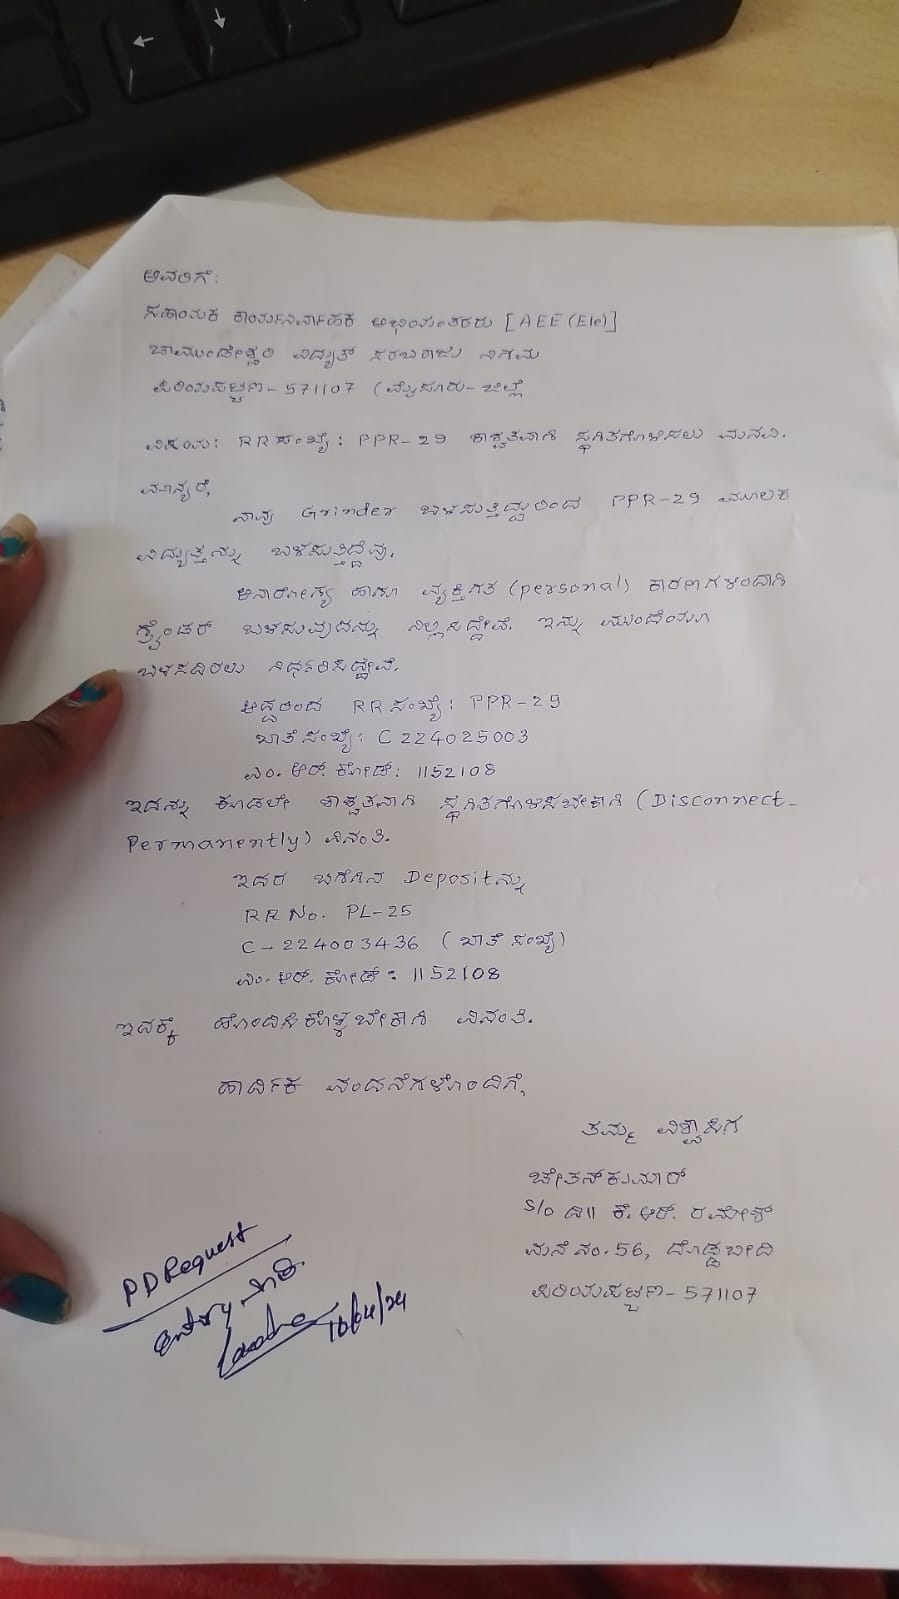 ಅವರಿಗೆ:
ಸಹಾಯಕ ಕಾರ್ಯನಿರ್ವಾಹಕ ಅಭಿಯಂತರರು [AEE (Ele)]
ಚಾಮುಂಡೇಶ್ವರಿ ವಿದ್ಯುತ್ ಸರಬರಾಜು ನಿಗಮ
ಪಿರಿಯಾಪಟ್ಟಣ - 571107 (ಮೈಸೂರು - ಜಿಲ್ಲೆ
ವಿಷಯ: RR ಸಂಖ್ಯೆ: PPR-29 ಶಾಶ್ವತವಾಗಿ ಸ್ಥಗಿತಗೊಳಿಸಲು ಮನವಿ.
ಮಾನ್ಯರೆ,
ನಾವು Grinder ಬಳಸುತ್ತಿದ್ದುದರಿಂದ PPR-29 ಮೂಲಕ
ವಿದ್ಯುತ್ತನ್ನು ಬಳಸುತ್ತಿದ್ದೆವು.
ಅನಾರೋಗ್ಯ ಹಾಗೂ ವ್ಯಕ್ತಿಗತ (personal) ಕಾರಣಗಳಿಂದಾಗಿ
ಗ್ರೈಂಡರ್ ಬಳಸುವುದನ್ನು ನಿಲ್ಲಿಸಿದ್ದೇವೆ. ಇನ್ನು ಮುಂದೆಯೂ
ಬಳಸದಿರಲು ನಿರ್ಧರಿಸಿದ್ದೇವೆ.
ಆದ್ದರಿಂದ RR ಸಂಖ್ಯೆ: PPR-29
ಖಾತೆ ಸಂಖ್ಯೆ: C 224025003
ಎಂ. ಆರ್. ಕೋಡ್: 1152108
ಇದನ್ನು ಕೂಡಲೇ ಶಾಶ್ವತವಾಗಿ ಸ್ಥಗಿತಗೊಳಿಸಬೇಕಾಗಿ (Disconnect-
Permanently) ವಿನಂತಿ.
ಇದರ ಬಗೆಗಿನ Depositನ್ನು
RR No. PL-25
C-224003436 (ಖಾತೆ ಸಂಖ್ಯೆ)
ಎಂ. ಆರ್. ಕೋಡ್: 1152108
ಇದಕ್ಕೆ ಹೊಂದಿಸಿಕೊಳ್ಳಬೇಕಾಗಿ ವಿನಂತಿ.
ಹಾರ್ದಿಕ ವಂದನೆಗಳೊಂದಿಗೆ,
ತಮ್ಮ ವಿಶ್ವಾಸಿಗ
ಚೇತನ್ ಕುಮಾರ್
S/o ದಿ|| ಕೆ. ಆರ್. ರಮೇಶ್
ಮನೆ ನಂ. 56, ದೊಡ್ಡಬೀದಿ
ಪಿರಿಯಾಪಟ್ಟಣ - 571107
PD Request
entry ಮಾಡಿ
10/04/24